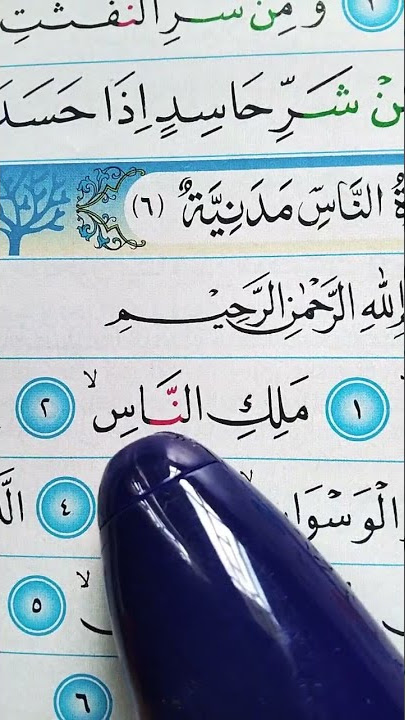 ٣ وَ مِنْ شَرِّ النَّفّٰثٰتِ
مِنْ شَرِّ حَاسِدٍ اِذَا حَسَدَ
النَّاسِ مَدَنِيَّةٌ (٦)
اللهِ الرَّحْمٰنِ الرَّحِيْمِ
١ مَلِكِ النَّاسِ ۙ ٢
الْوَسْوَا ٤
٥
٦